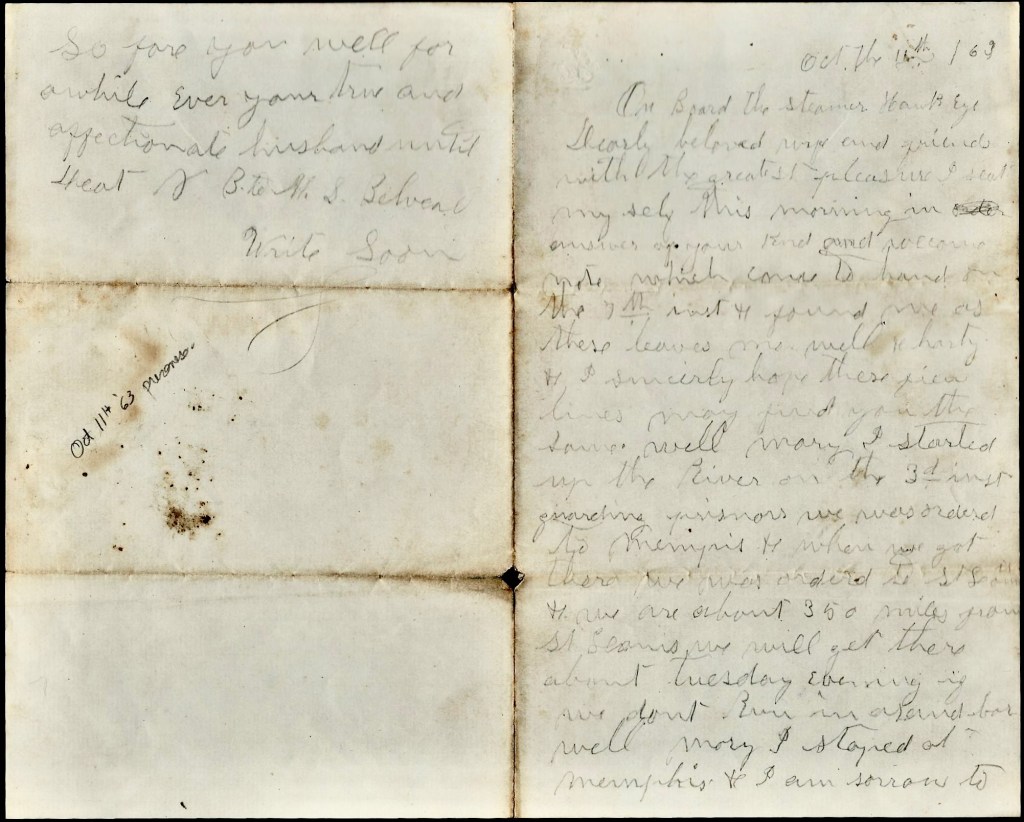 Oct. the 11th / 63
On Board the steamer Hawk Eye
Dearly beloved wife and friends
with the greatest pleasure I seat
my self this morning in
answer of your kind and
note which come to hand on
the 7th inst & found me as
these leaves me well & harty
& I sincerly hope these
lines may find you the
same well mary I started
up the River on the 3d inst
guarding prisnors we was orderd
to Mempis & when we got
there we was orderd to St Louis
& we are about 350 miles from
St Louis we will get there
about tuesday Evening if
we dont Run in a sand bar
well mary I stoped at
memphis & I am sorrow to
So fare you well for
awhile Ever your true and
affectionate husband until
Deat B to M. S.
Write Soon
Oct 11th '63